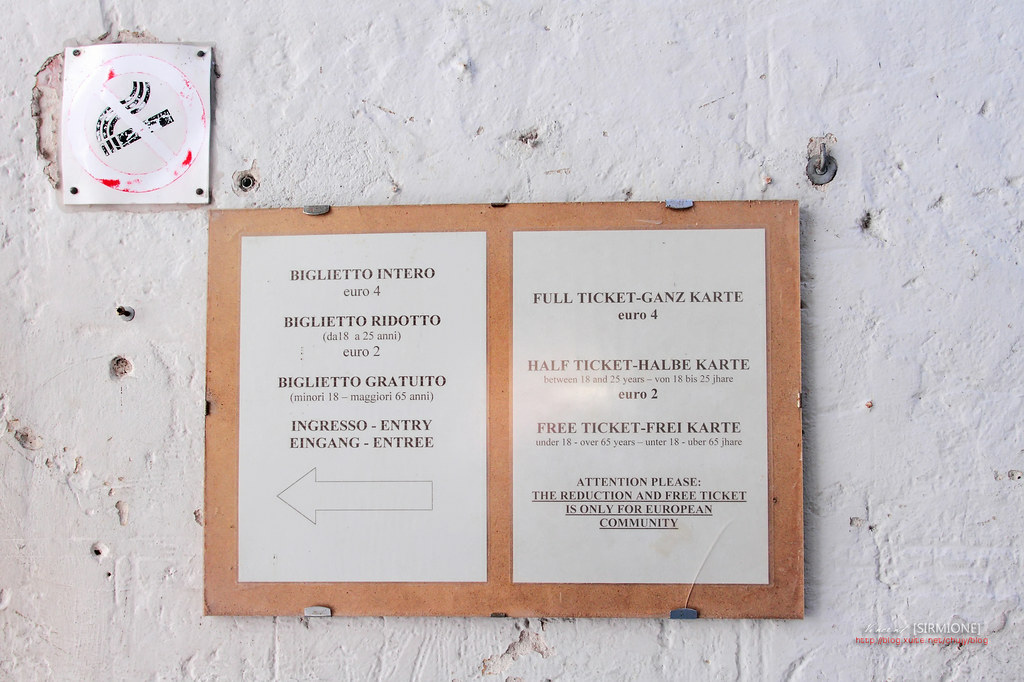 BIGLIETTO INTERO
euro 4
BIGLIETTO RIDOTTO
(da18 a 25 anni)
euro 2
BIGLIETTO GRATUITO
(minori 18 – maggiori 65 anni)
INGRESSO - ENTRY
EINGANG - ENTREE
FULL TICKET-GANZ KARTE
euro 4
HALF TICKET-HALBE KARTE
between 18 and 25 years – von 18 bis 25 jhare
euro 2
FREE TICKET-FREI KARTE
under 18 - over 65 years – unter 18 - uber 65 jhare
ATTENTION PLEASE:
THE REDUCTION AND FREE TICKET
IS ONLY FOR EUROPEAN
COMMUNITY
[SIRMIONE]